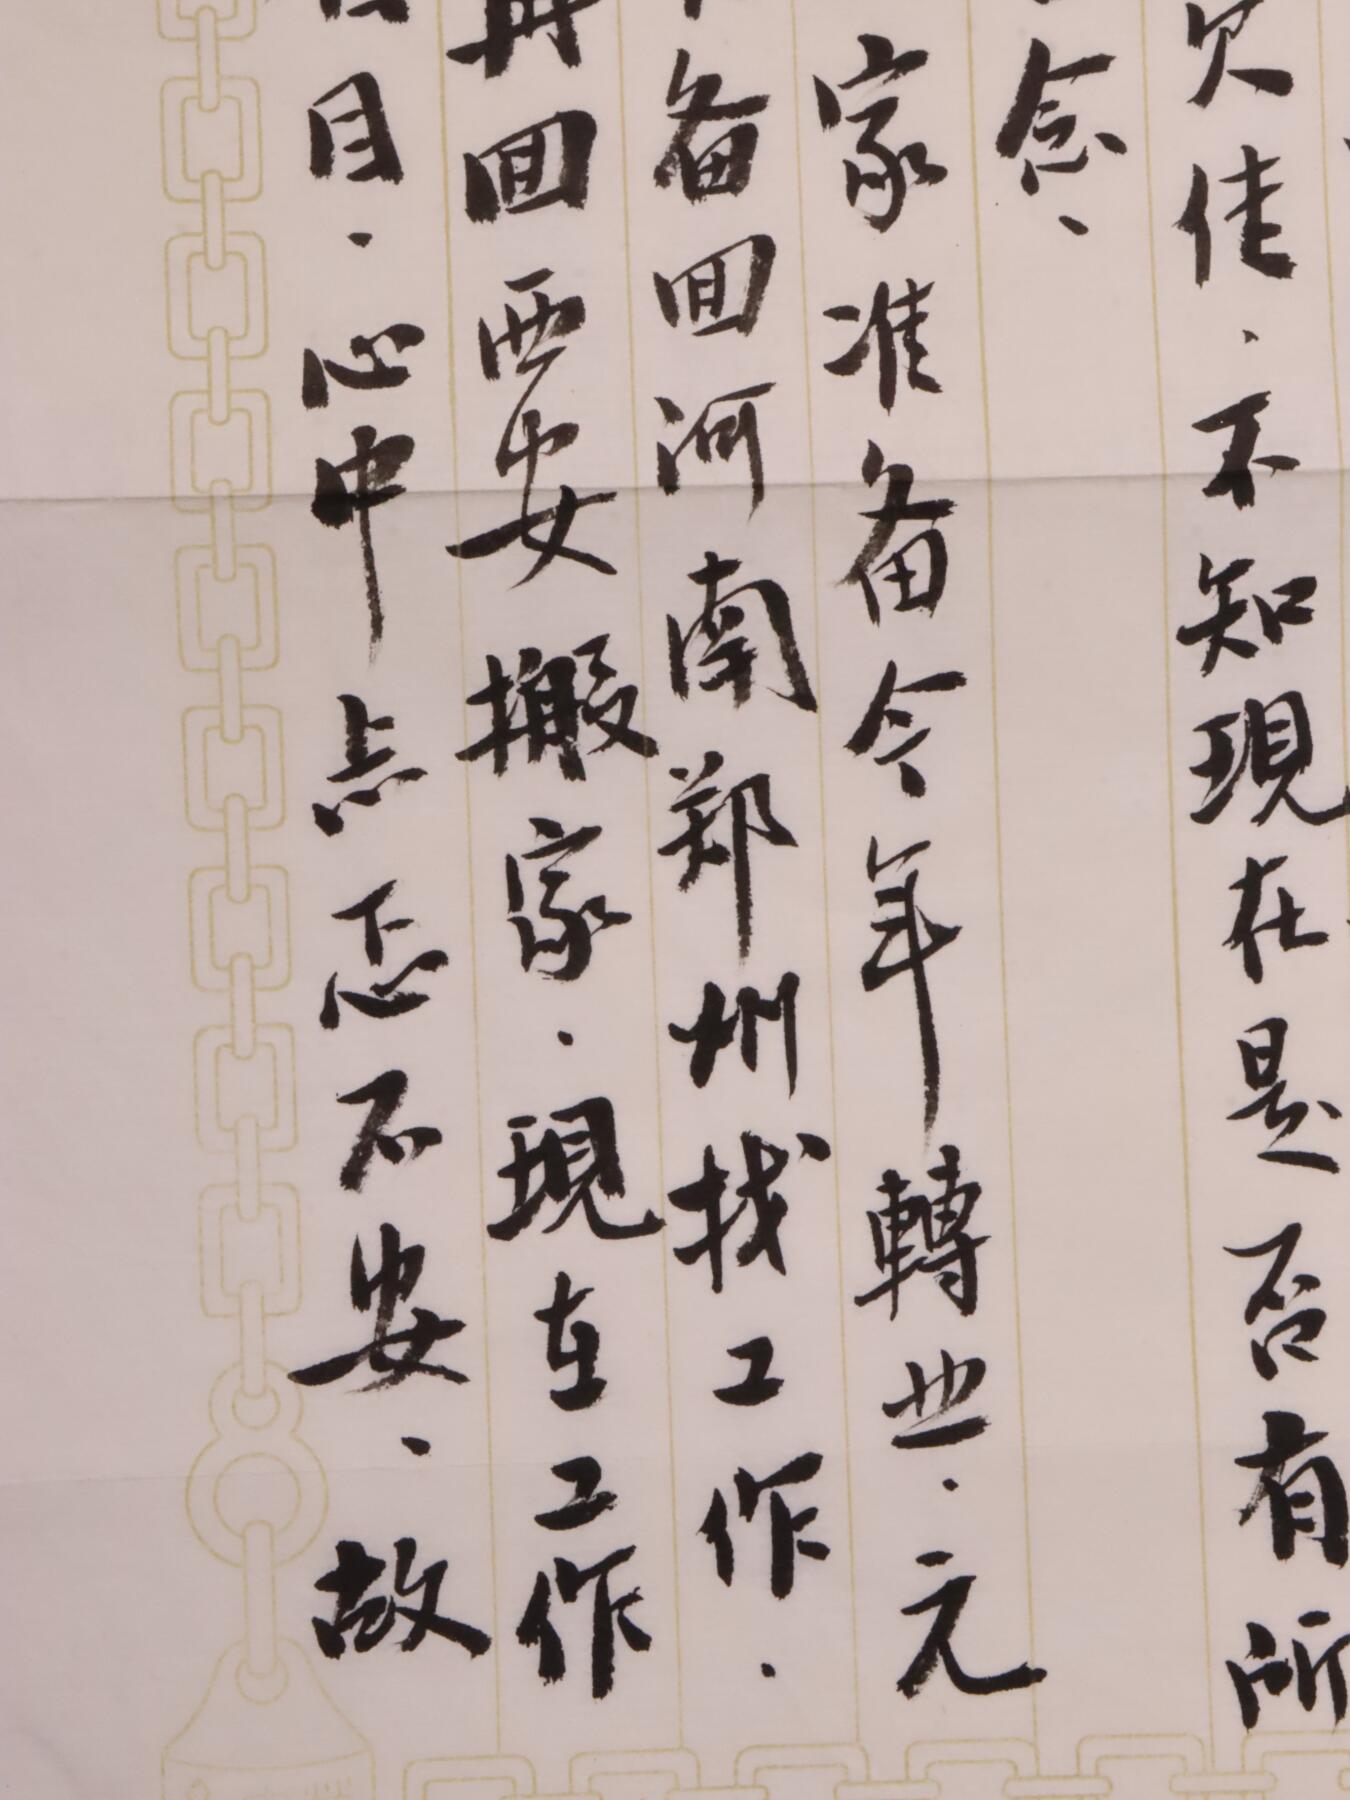 欠佳、不知現在是否有所
念、
家准备今年轉业、元
备回河南郑州找工作、
再回西安搬家、現在工作
目、心中忐忑不安、故